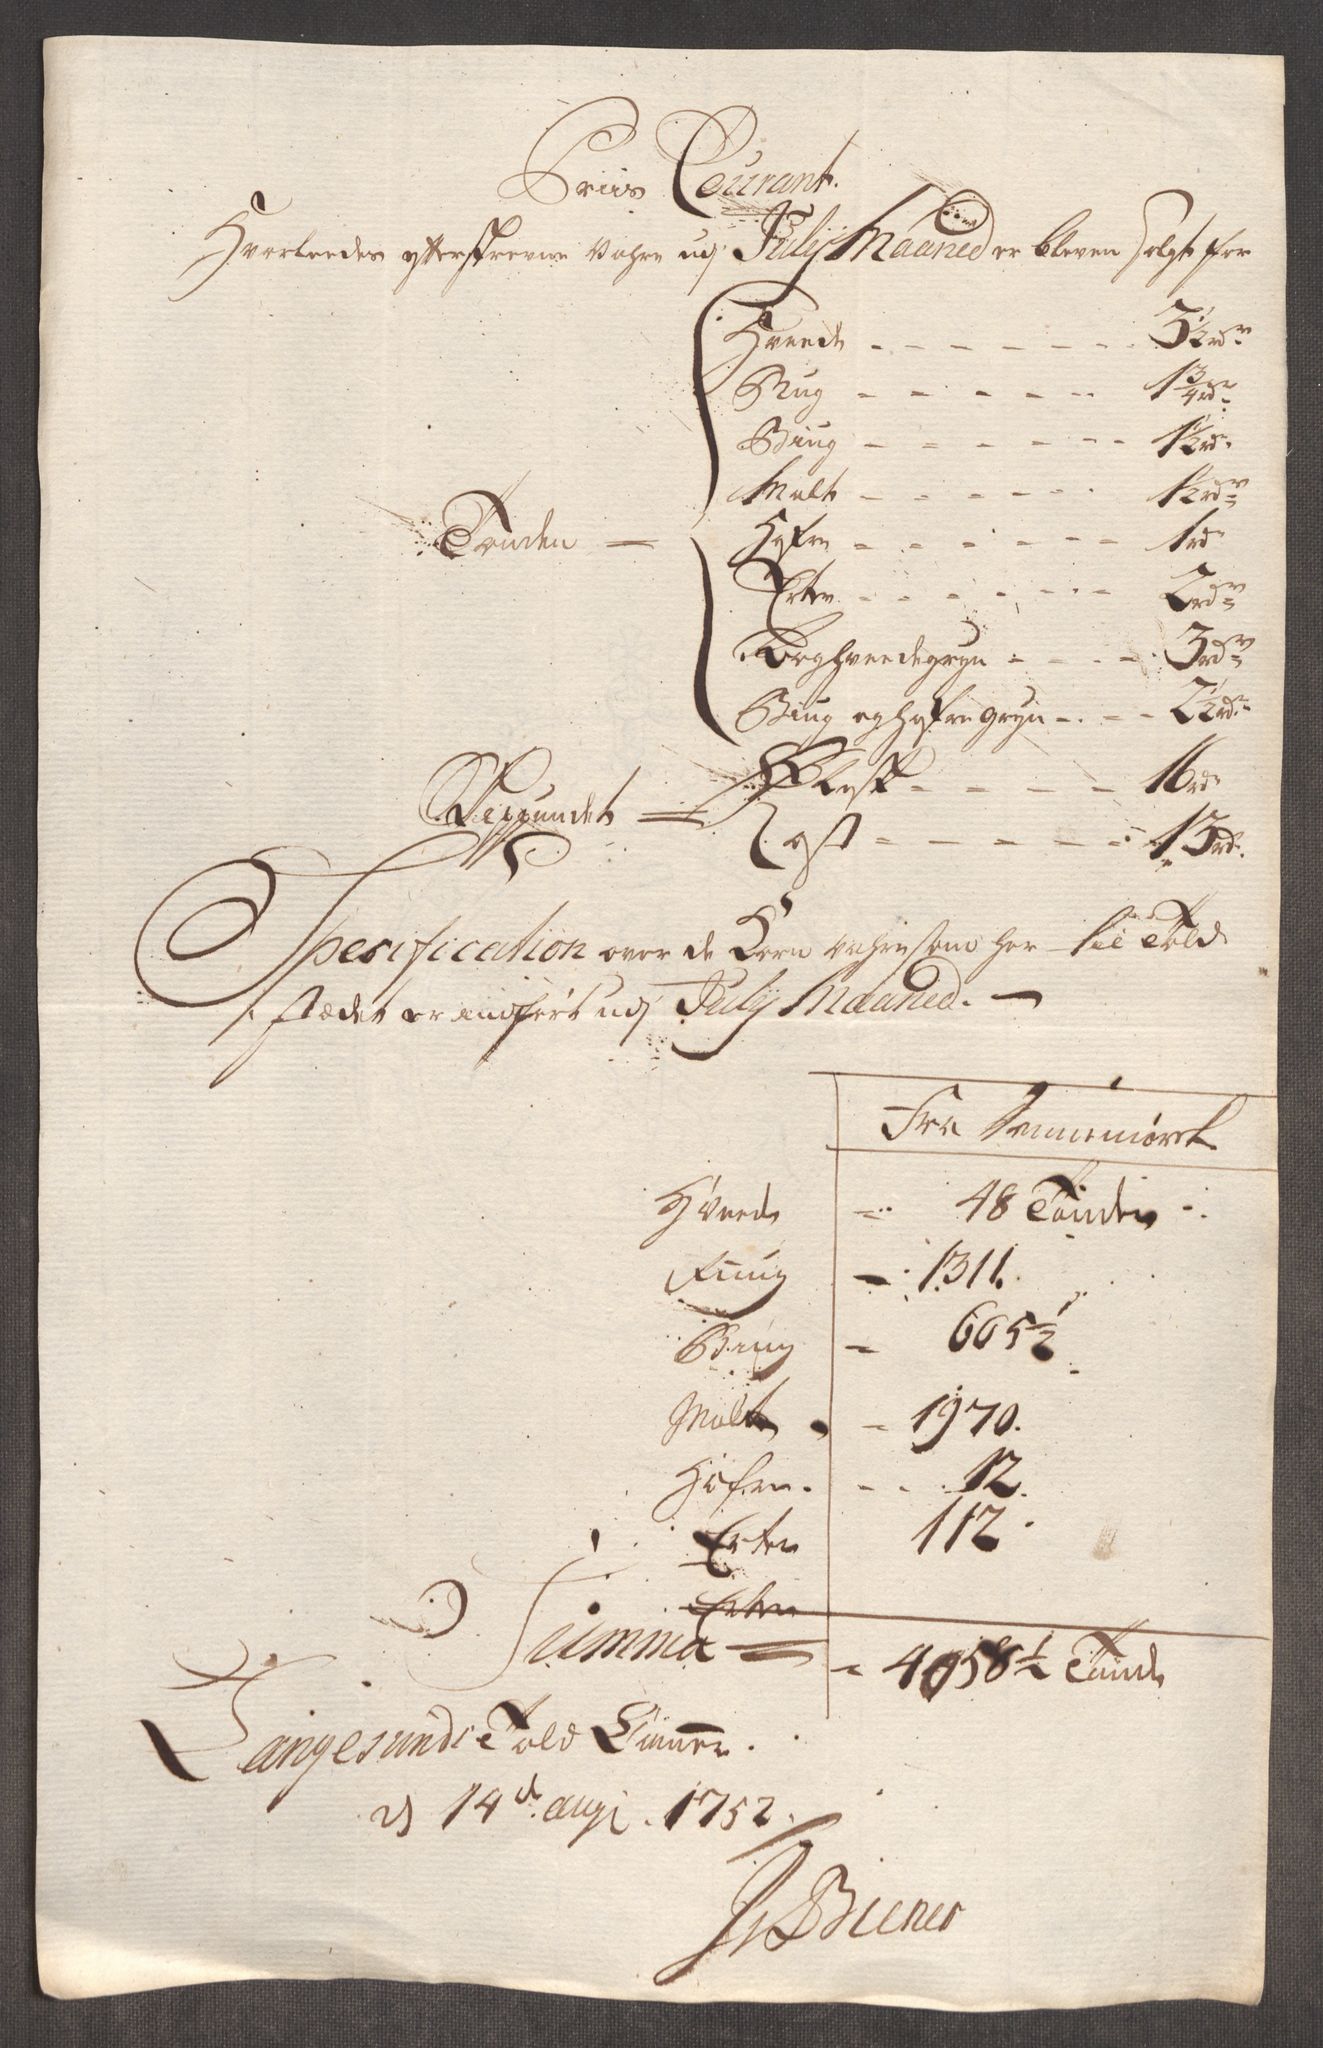 Priis Courant.
Hvorleedes efterskrevne Vahre udj Julij Maaned er bleven solgt for
Hveede - - - - - - - 3 1/2 rdr
Rug - - - - - - 1 3/4 rdr
Biug - - - - - - - 1 1/2 rdr
Malt - - - - - - 1 1/2 rdr
Tønden = Hafre - - - - - - 1 rdr
Erter - - - - - - 2 rdr
Boghveedegryn - - - - 3 rdr
Biug og Hafre gryn - - - 2 1/2 rdr
Flesk - - - - - 16 rdr
= Ost - - - - - - 13 rdr.
Specification over de Korn Vahre som her til Told
stædet er indført udj Julij Maaned. -
Fra Dannemørck
Hveede = 48 Tønder
Ruug - 1311.
Biug - 605 1/2
Malt - 1970.
Hafre - - 12.
Erter 112.
Erter
Summa = - 4058 1/2 Tønde
Langesunds Told Cammer.
d 14de augj. 1752.
Biener